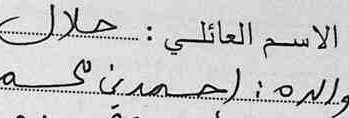 الاسم العائلي: حلال
والده: احمد بن محمد